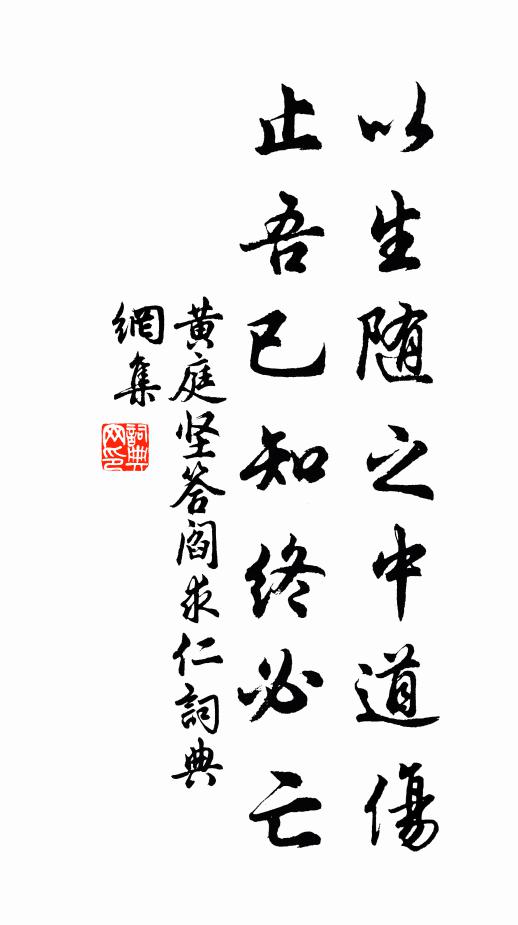 以生随之中道傷
止吾已知終必亡
黄庭坚答阎求仁詞典
網集
詞典網印